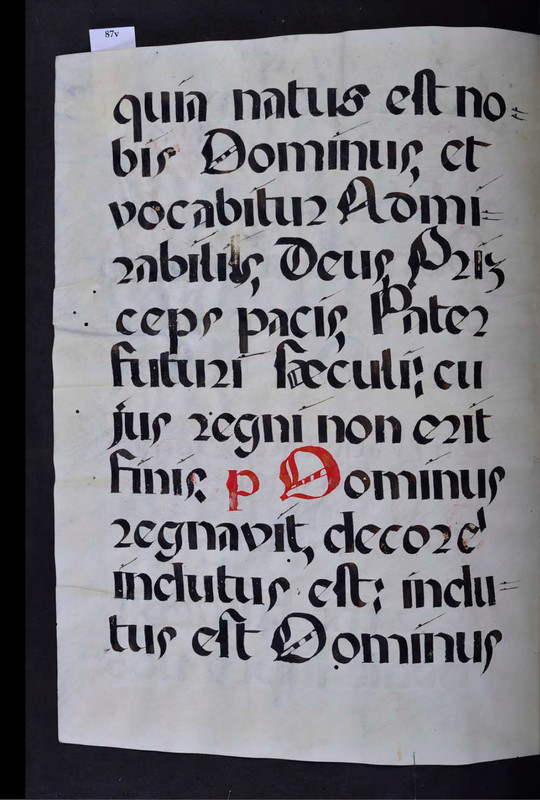 87v
quia natus est no=
bis Dominus, et
vocabitur Admi=
rabilis, Deus, Prin
ceps pacis, Pater
futuri sæculi: cu
jus regni non erit
finis. p Dominus
regnavit, decore
indutus est: indu=
tus est Dominus